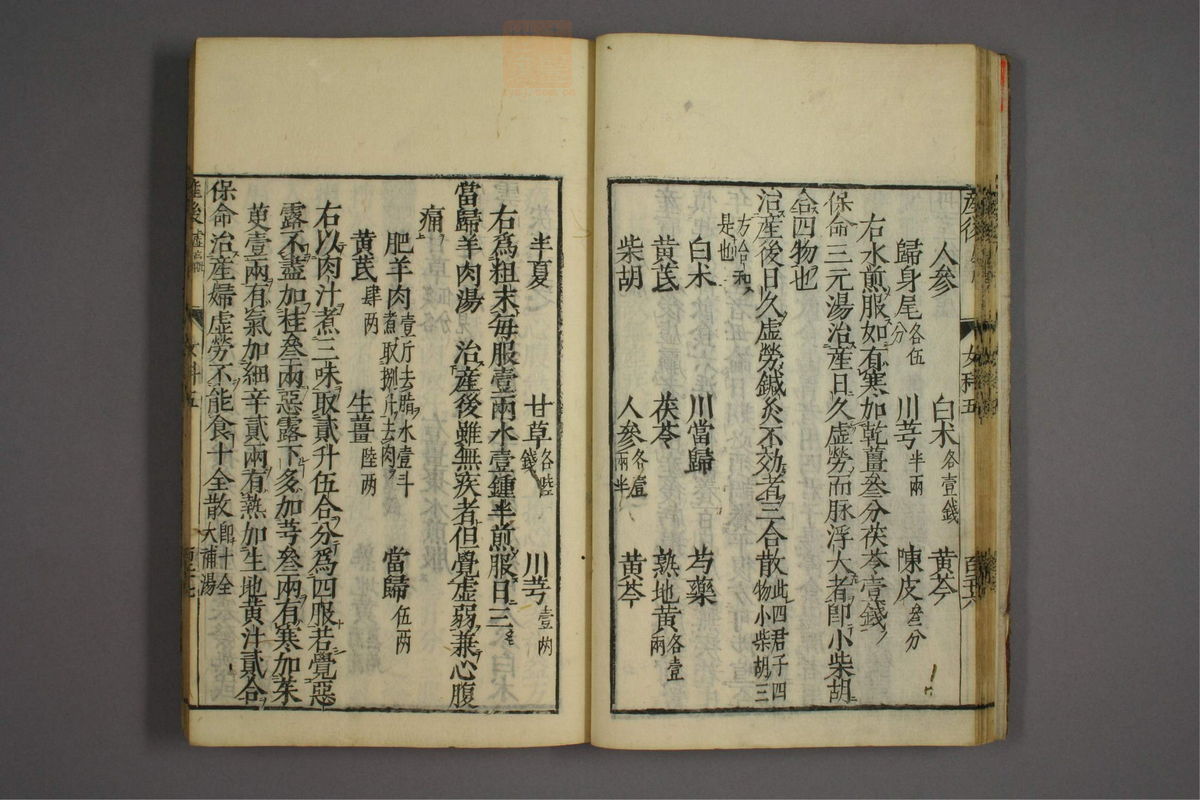 人參　白术各壹錢　黃芩
歸身尾各伍分　川芎半兩　陳皮叄分
右水煎服如有寒加乾薑叄分茯苓壹錢
保命三元湯治産日久虛勞而脉浮大者即小柴胡
合四物也
治産後日久虛勞鍼灸不効者三合散此四君子四物小柴胡三
方合和是也
白术　川當歸　芍藥
黃芪　茯苓　熟地黃各壹兩
柴胡　人參各壹兩半　黃芩
半夏　甘草各陸錢　川芎壹两
右為粗末每服壹兩水壹鍾半煎服日三
當歸羊肉湯　治産後雖無疾者但覺虛弱兼心腹
痛
肥羊肉壹斤去脂水壹斗煮取捌斤去肉　當歸伍两
黃芪肆两　生薑陸两
右以肉汁煮三味取貳升伍合分為四服若覺惡
露不盡加桂叄兩惡露下多加芎叄兩有寒加茱
萸壹兩有氣加細辛貳兩有熱加生地黃汁貳合
保命治産婦虛勞不能食十全散即十全大補湯
産後　女科五